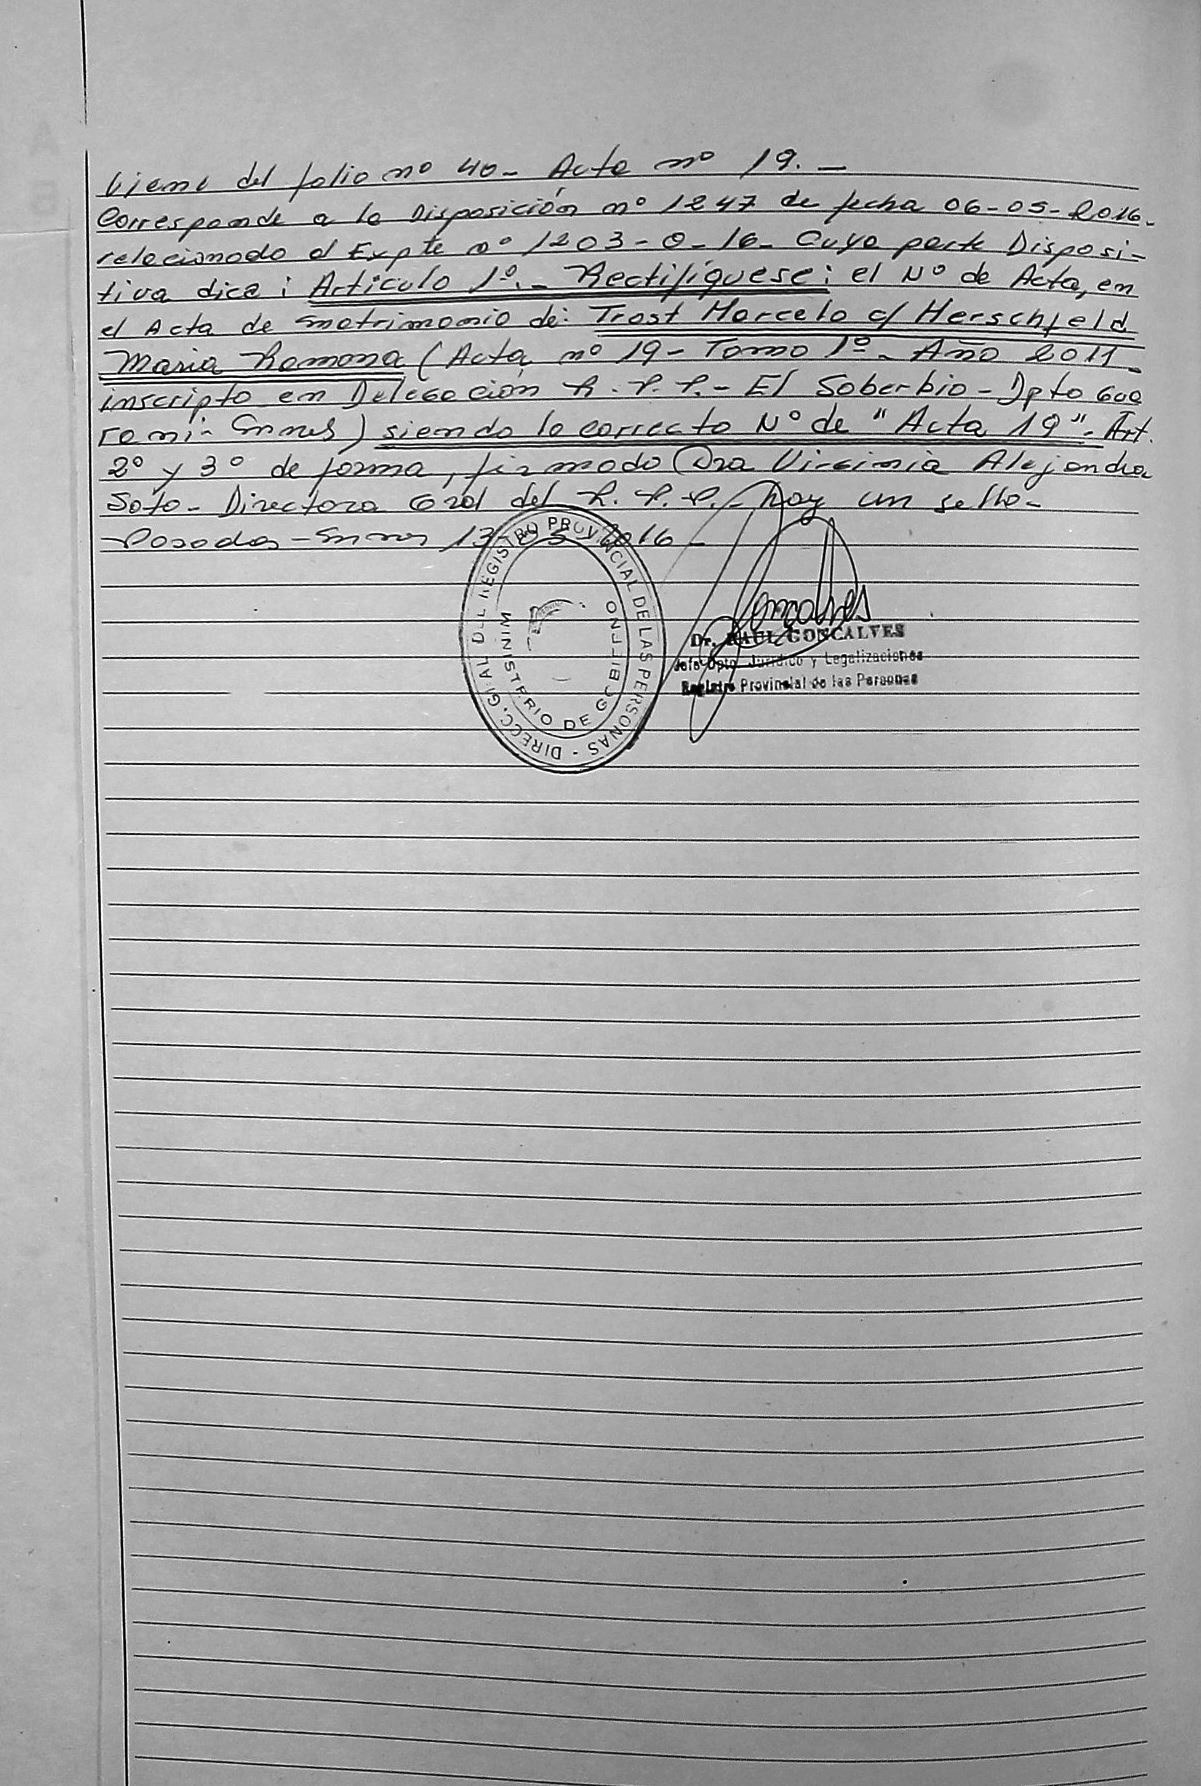 Viene del folio nº 40- Acta nº 19.-
Corresponde a la Disposición nº 1247 de fecha 06-05-2016-
relacionado al Expte nº 1203-O-16- Cuya parte Disposi-
tiva dice: Artículo 1º.- Rectifíquese: el Nº de Acta, en
el Acta de matrimonio de: Trost Marcelo c/ Herschfeld
Maria Ramona (Acta nº 19- Tomo 1º- Año 2011-
inscripto en Delegación R.P.P.- El Soberbio- Dpto Gua
raní- Mnes) siendo lo correcto Nº de "Acta 19"- Art.
2º y 3º de forma, firmado Dra Virginia Alejandra
Soto- Directora Gral del R.P.P.- hay un sello-
Posadas- Mnes 13-05-2016-
DIRECC. GRAL DEL REGISTRO PROVINCIAL DE LAS PERSONAS -
MINISTERIO DE GOBIERNO
Dr. RAUL GONCALVES
Jefe Dpto. Jurídico y Legalizaciones
Registro Provincial de las Personas